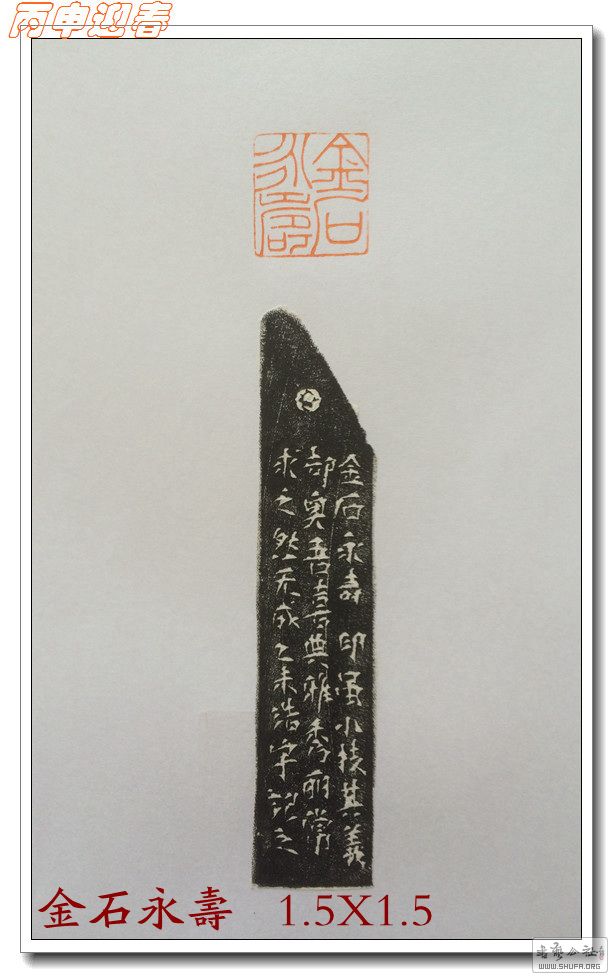 丙申迎春
金石
永壽
金石永壽 印虽小技其義
却奥吾喜典雅秀丽常
求之然无成乙未浩宇記之
金石永壽 1.5X1.5
书艺公社
WWW.SHUFA.ORG